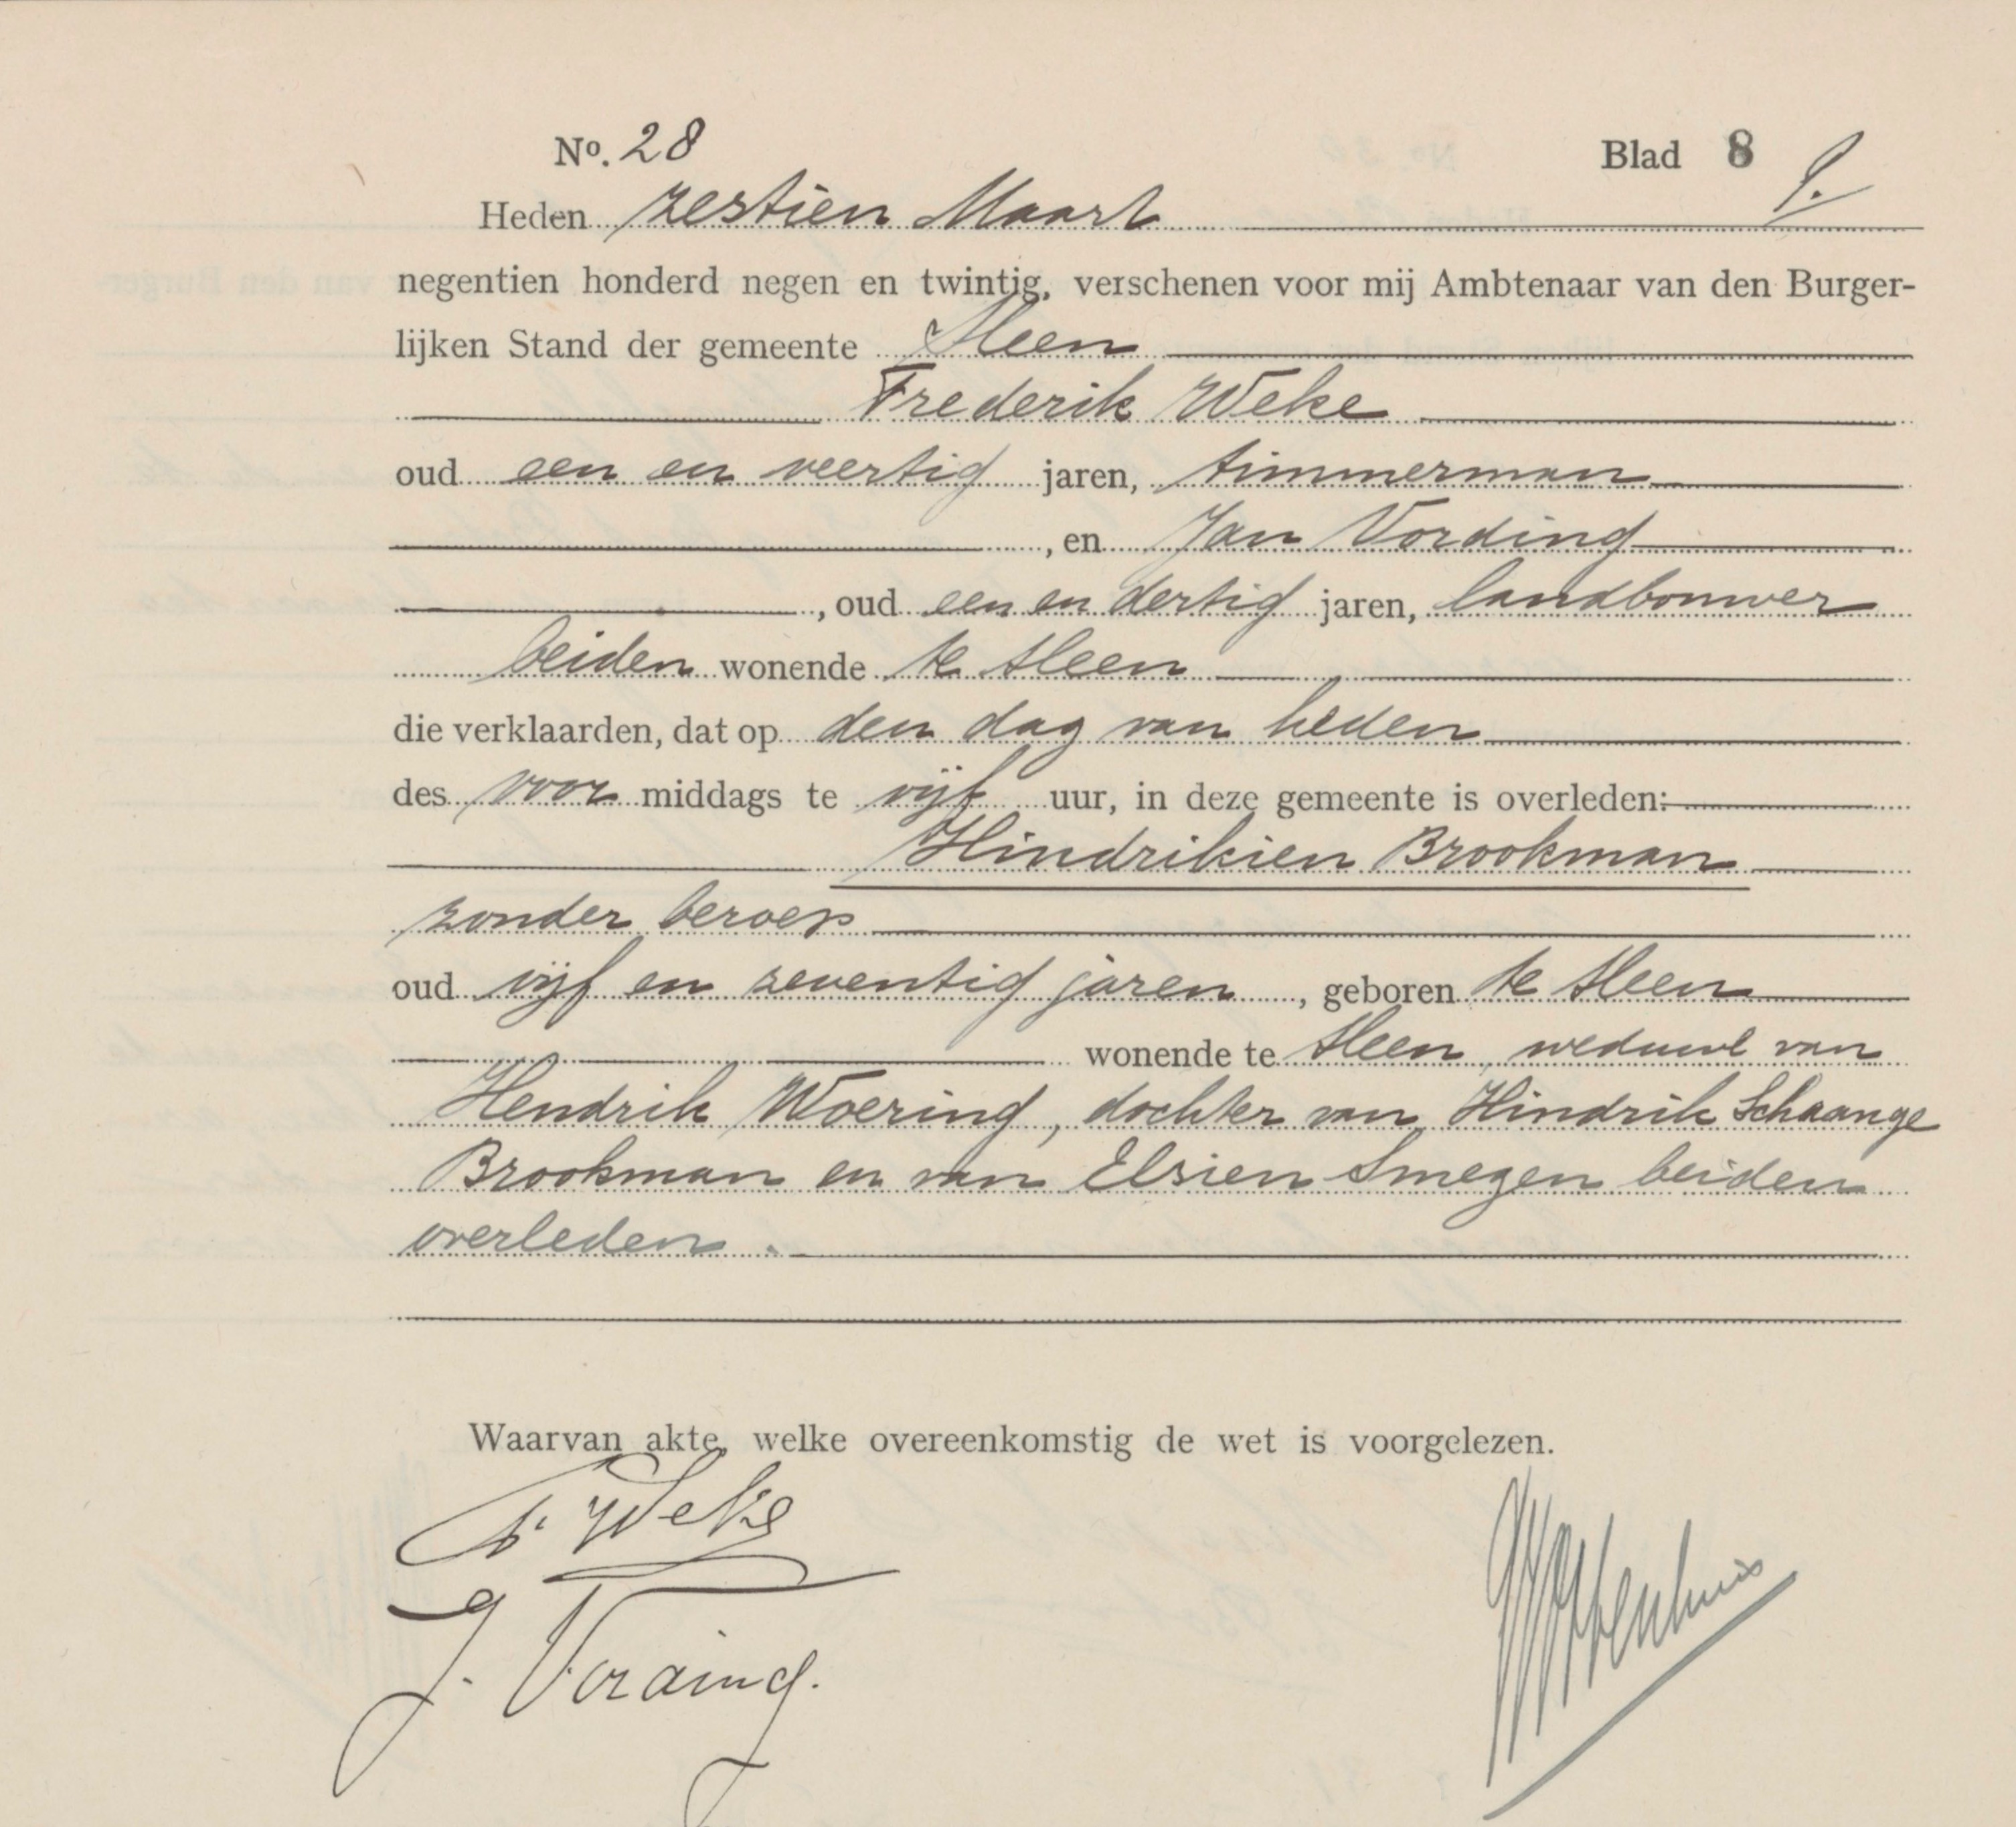 No. 28 Blad 8
Heden zestien Maart
negentien honderd negen en twintig, verschenen voor mij Ambtenaar van den Burger-
lijken Stand der gemeente Sleen
Frederik Weke
oud een en veertig jaren, timmerman
, en Jan Vording
, oud een en dertig jaren, landbouwer
beiden wonende te Sleen
die verklaarden, dat op den dag van heden
des voor middags te vijf uur, in deze gemeente is overleden:
Hindrikien Brookman
zonder beroep
oud vijf en zeventig jaren, geboren te Sleen
wonende te Sleen, weduwe van
Hendrik Woering, dochter van Hindrik Schaange
Brookman en van Elsien Smegen beiden
overleden.
Waarvan akte, welke overeenkomstig de wet is voorgelezen.
F. Weke
J. Vording.